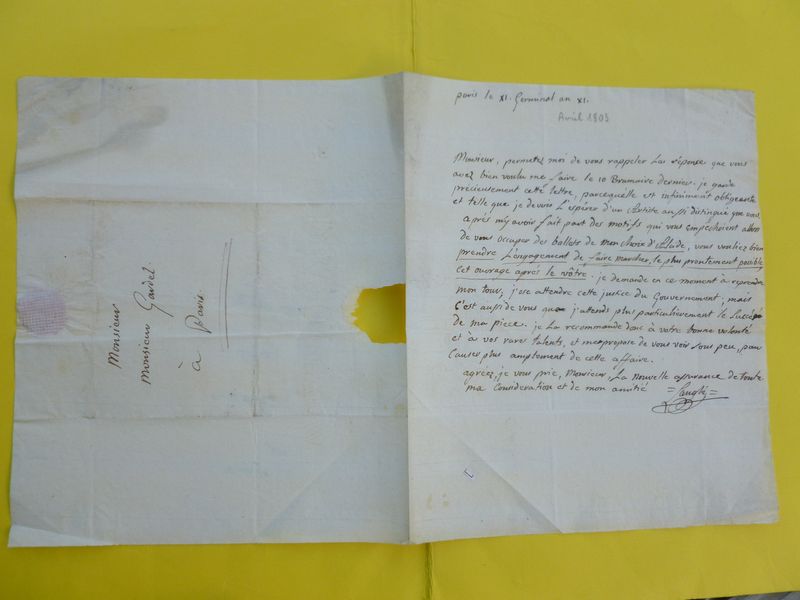 Monsieur
Monsieur Gardel
à Paris.
paris le XI. Germinal an XI.
Avril 1803
Monsieur, permetez moi de vous rappeler la réponse que vous
avez bien voulu me faire le 10 Brumaire dernier. je garde
précieusement cette lettre, parcequ'elle est infiniment obligeante
et telle que je devois l'espérer d'un Artiste aussi distingué que vous.
après m'y avoir fait part des motifs qui vous empêchoient alors
de vous occuper des ballets de mon choix d'Alcide, vous vouliez bien
prendre l'engagement de faire marcher, le plus prontement possible,
cet ouvrage après le vôtre. je demande en ce moment à reprendre
mon tour, j'ose attendre cette justice du Gouvernement; mais
C'est aussi de vous que j'attends plus particulièrement le Succès
de ma piece. je la recommande donc à votre bonne volonté
et à vos rares talents, et me propose de vous voir sous peu, pour
Causer plus amplement de cette affaire.
agréez, je vous prie, Monsieur, la nouvelle assurance de toute
ma Consideration et de mon amitié = Langlé =